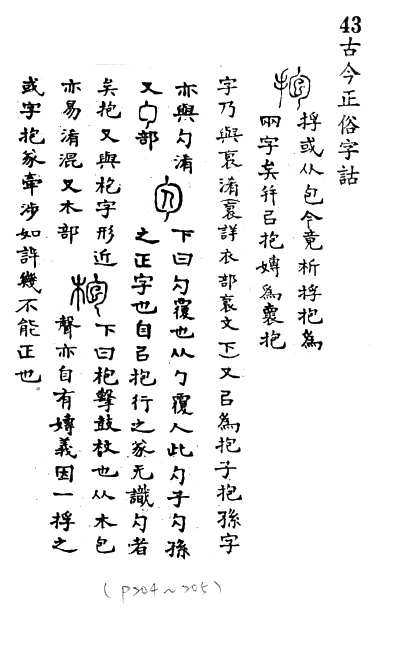 43
古今正俗字詁
捊或从包今竟析捊抱為
兩字矣幷㠯抱嫥為褱抱
字乃與褱淆(褱詳衣部褱文下)又㠯為抱子抱孫字
亦與勽淆
又勹部
下曰勽覆也从勹覆人此勽子勽孫
之正字也自㠯抱行之㒸无識勽者
矣抱又與枹字形近
亦易淆混又木部
下曰枹擊鼓杖也从木包
聲亦自有嫥義因一捊之
或字抱㒸牽涉如許幾不能正也
(P204~205)